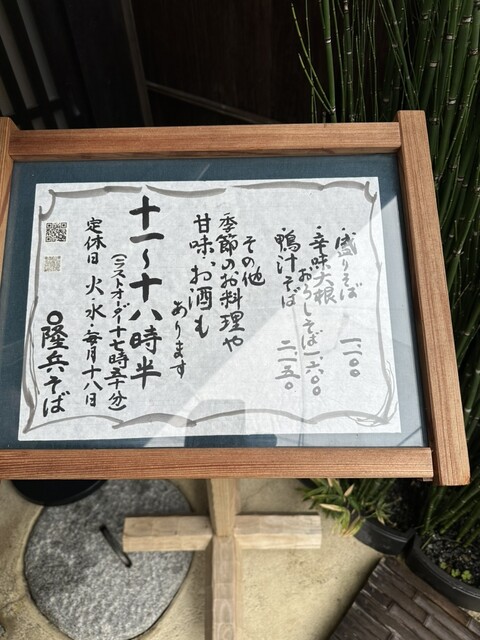 ・盛りそば 一、一〇〇
・辛味大根
おろしそば 一、六〇〇
・鴨汁そば 二、一五〇
その他
季節のお料理や
甘味、お酒も
あります
十一～十八時半
（ラストオーダー十七時五十分）
定休日 火・水・毎月十八日
隆兵そば